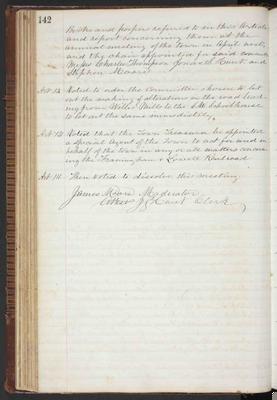 142
Books and papers referred to in this Article
and report concerning them at the
annual meeting of the town in April next,
and the Chair appointed for said Com
Messrs Charles Thompson Jonas Hunt and
Stephen Moore
Art 12 Voted to order the Committee chosen to let
out the making of alterations on the road lead
ing from Wells Mills to the S.W. Schoolhouse
to let out the same immediately.
Art 13 Voted that the Town Treasurer be appointed
a special Agent of the Town to act for and in
behalf of the town in any or all matters concern
ing the Framingham & Lowell Railroad
Art 14 Then voted to dissolve this meeting
James Moore Moderator
Hunt Clerk